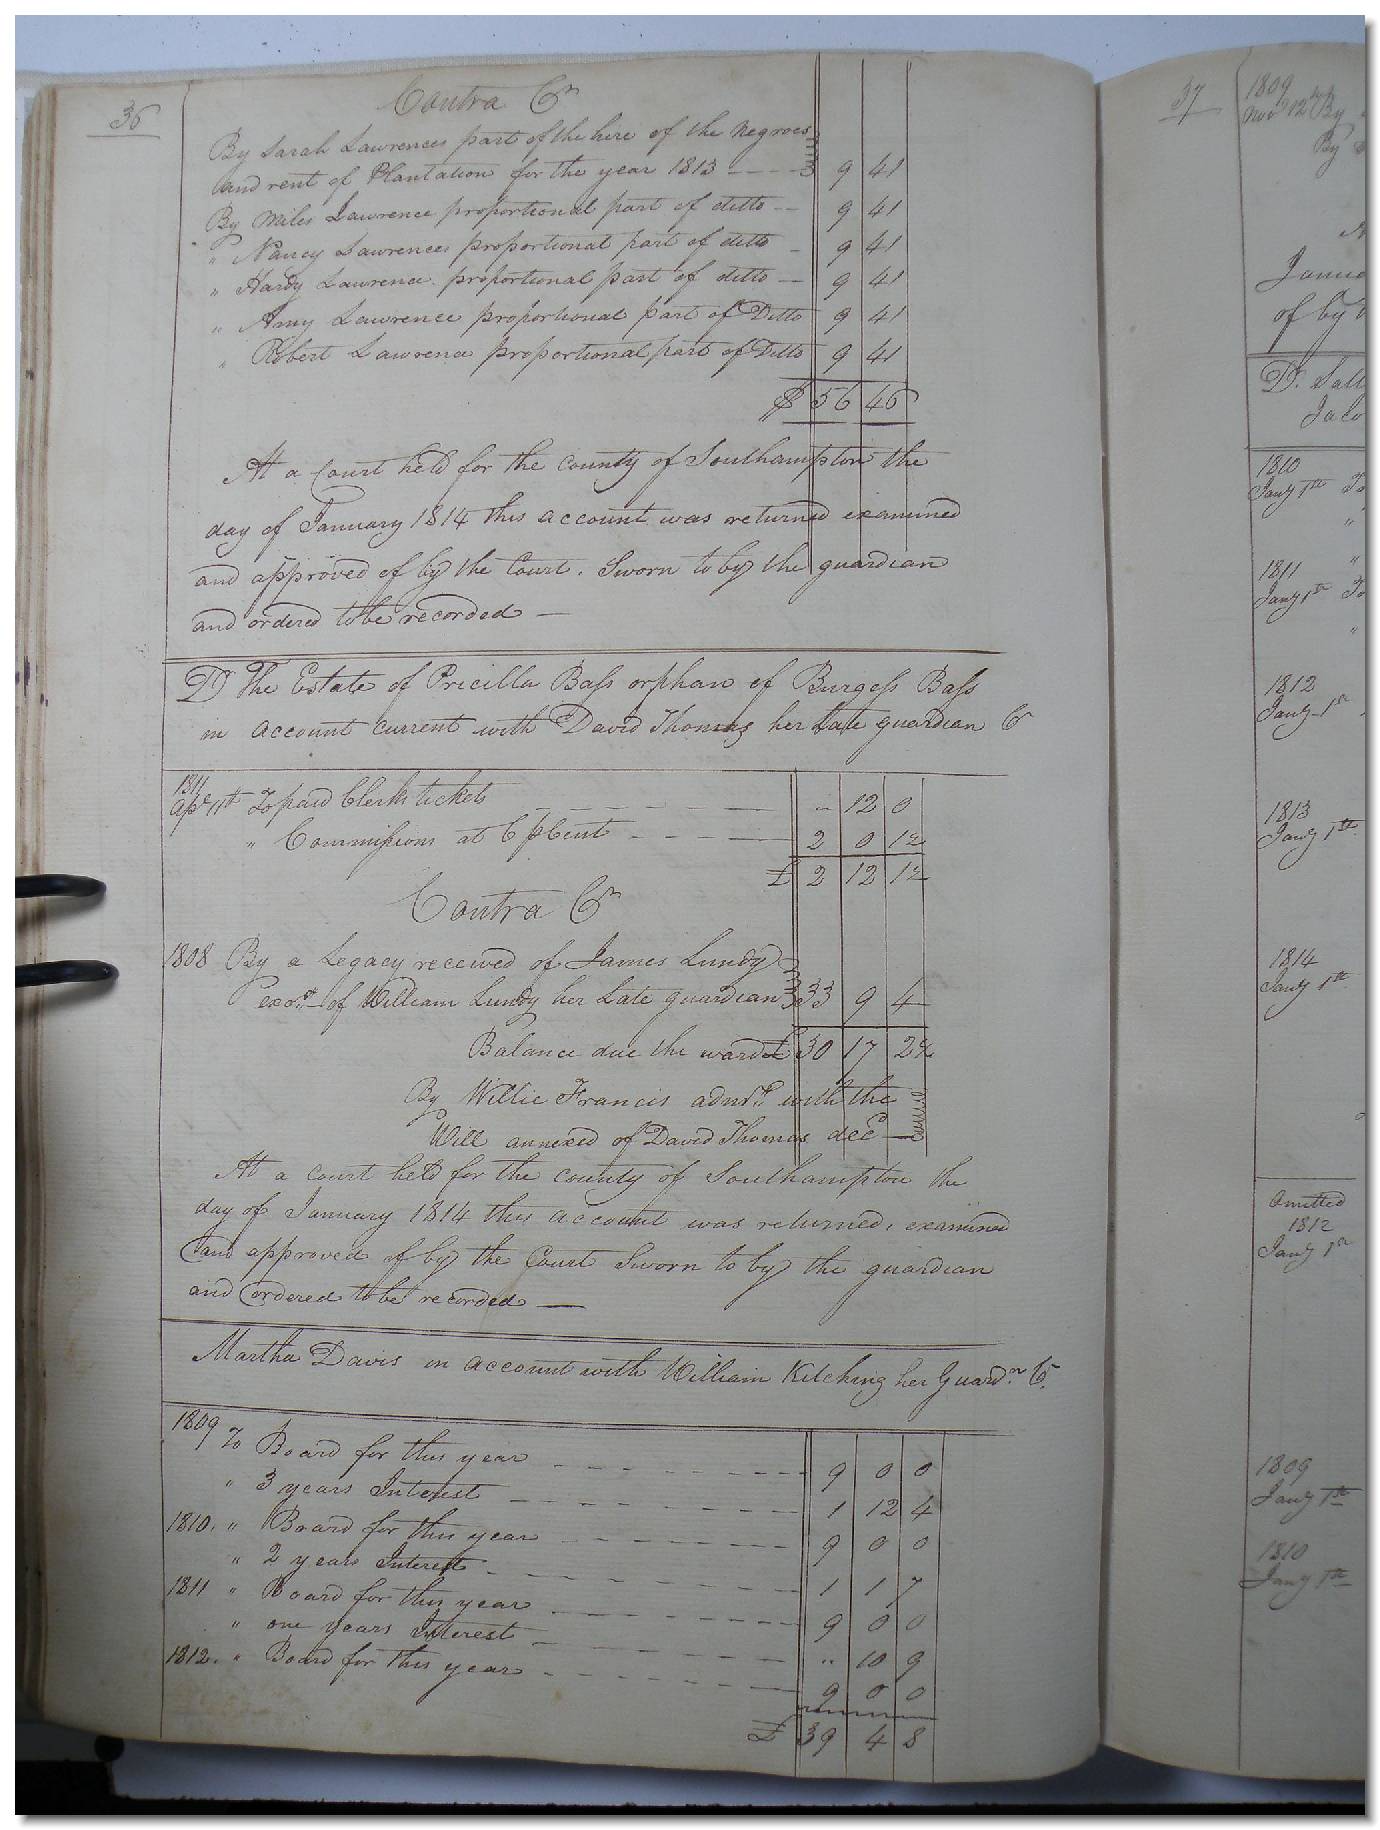 36
Contra Cr
By Sarah Lawrences part of the hire of the Negroes
and rent of Plantation for the year 1813 - - - - 9 41
By Miles Lawrence proportional part of ditto -- 9 41
" Nancy Lawrences proportional part of ditto - 9 41
" Hardy Lawrence proportional part of ditto -- 9 41
" Amy Lawrence proportional part of Ditto 9 41
" Robert Lawrence proportional part of Ditto 9 41
$ 56 46
At a Court held for the County of Southampton the
day of January 1814 this account was returned examined
and approved of by the Court. Sworn to by the guardian
and ordered to be recorded —
Dr The Estate of Pricilla Bass orphan of Burgess Bass
in account current with David Thomas her Late guardian Cr
1811
Apl 11th To paid Clerks tickets - - - - - - - " 12 0
" Commissions at 6 pCent - - - - - 2 0 1½
£ 2 12 1½
Contra Cr
1808 By a Legacy received of James Lundy
exor. of William Lundy her Late guardian 33 9 4
Balance due the ward £ 30 17 2½
By Willie Francis admr. with the
Will annexed of David Thomas decd —
At a Court held for the County of Southampton the
day of January 1814 this account was returned, examined
and approved of by the Court Sworn to by the guardian
and ordered to be recorded —
Martha Davis in account with William Kitching her Guardn Cr.
1809 To Board for this year - - - - - - - 9 0 0
" 3 years Interest - - - - - - - 1 12 4
1810. " Board for this year - - - - - - - 9 0 0
" 2 years Interest - - - - - - - 1 1 7
1811 " Board for this year - - - - - - - 9 0 0
" one years Interest - - - - - - - " 10 9
1812. " Board for this year - - - - - - - 9 0 0
£ 39 4 8
37
1809
Novr 12th By
By
of by
Dr. Sall
Jaco
1810
Jany 1st To
"
1811
Jany 1st To
"
1812
Jany 1st
1813
Jany 1st
1814
Jany 1st
Omitted
1812
Jany 1st
1809
Jany 1st
1810
Jany 1st